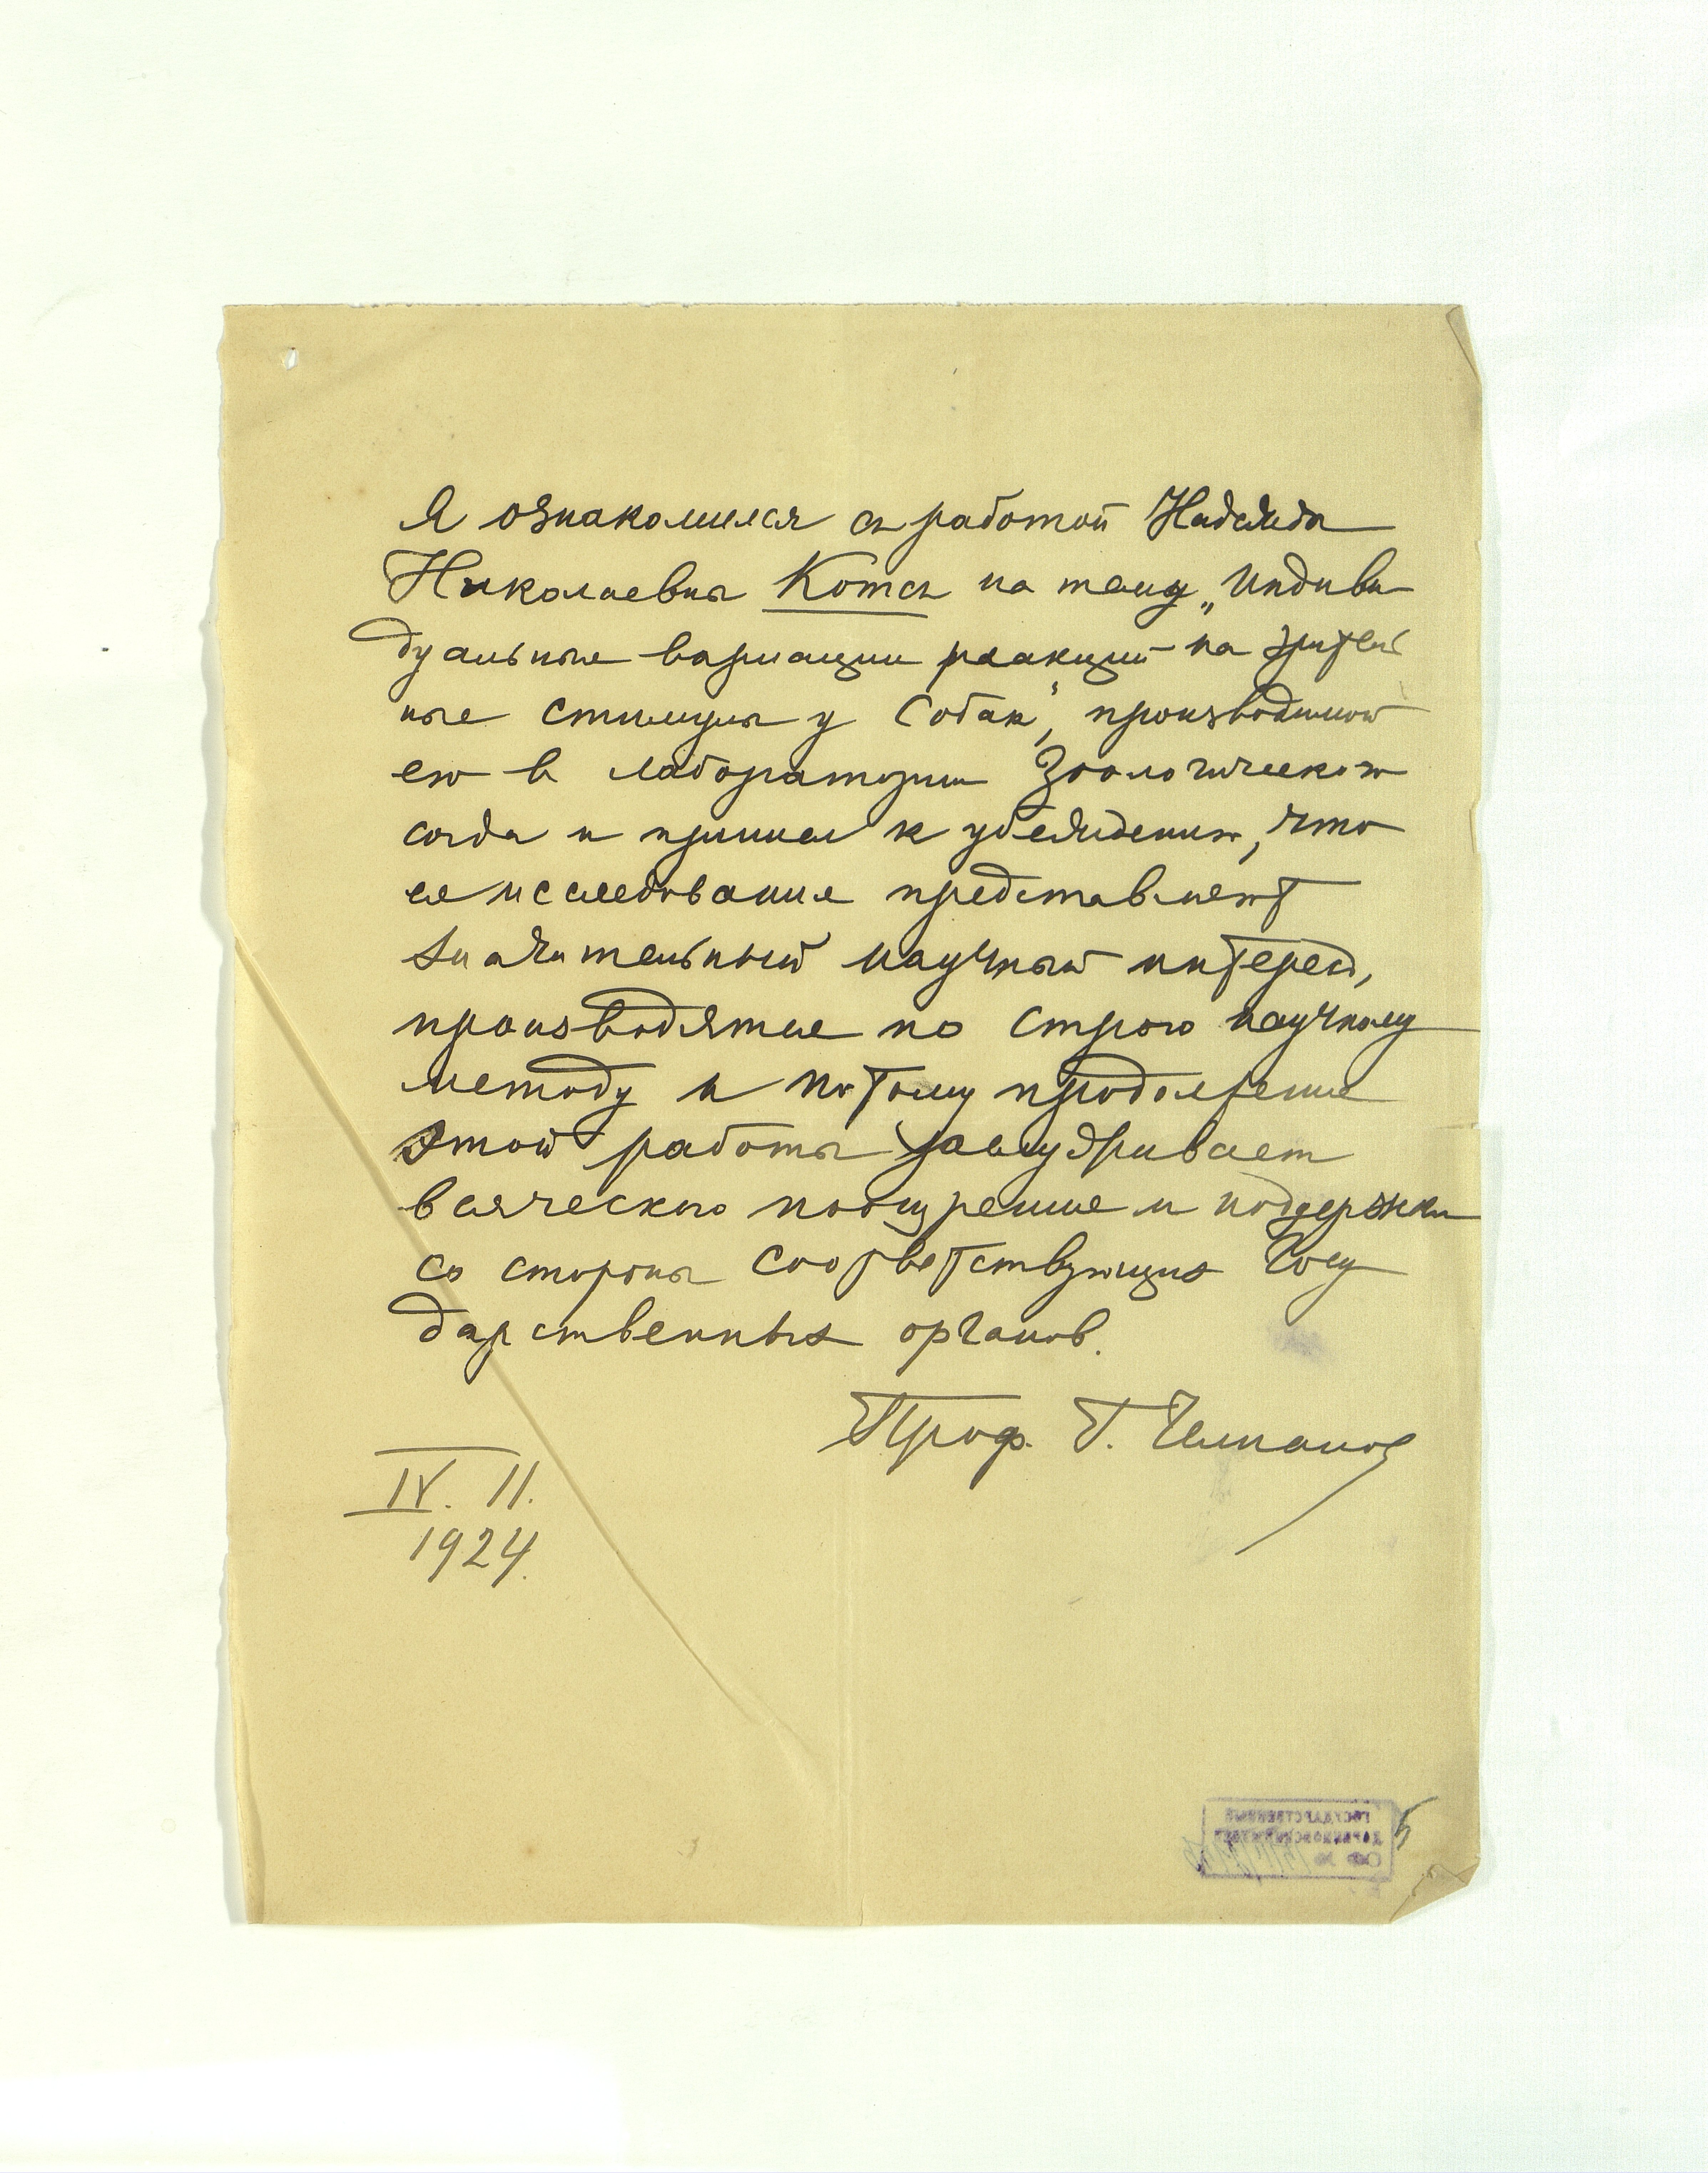 Я ознакомился съ работой Надежды
Николаевны Котсъ на тему „Индиви
дуальные вариации реакций на зритель
ные стимулы у собак", производимой
ею в лаборатории Зоологического
сада и пришел к убеждению, что
ее исследование представляет
значительный научный интерес,
производятся по строго научному
методу и потому продолжение
этой работы заслуживает
всяческого поощрения и поддержки
со стороны соответствующих Госу
дарственных органов.
Проф. Г. Челпанов
IV. 11.
1924.
ГОСУДАРСТВЕННЫЙ
ДАРВИНОВСКИЙ МУЗЕЙ
ОФ №
5